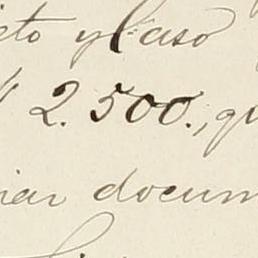 cto y caso
2.500., qu
iar docum